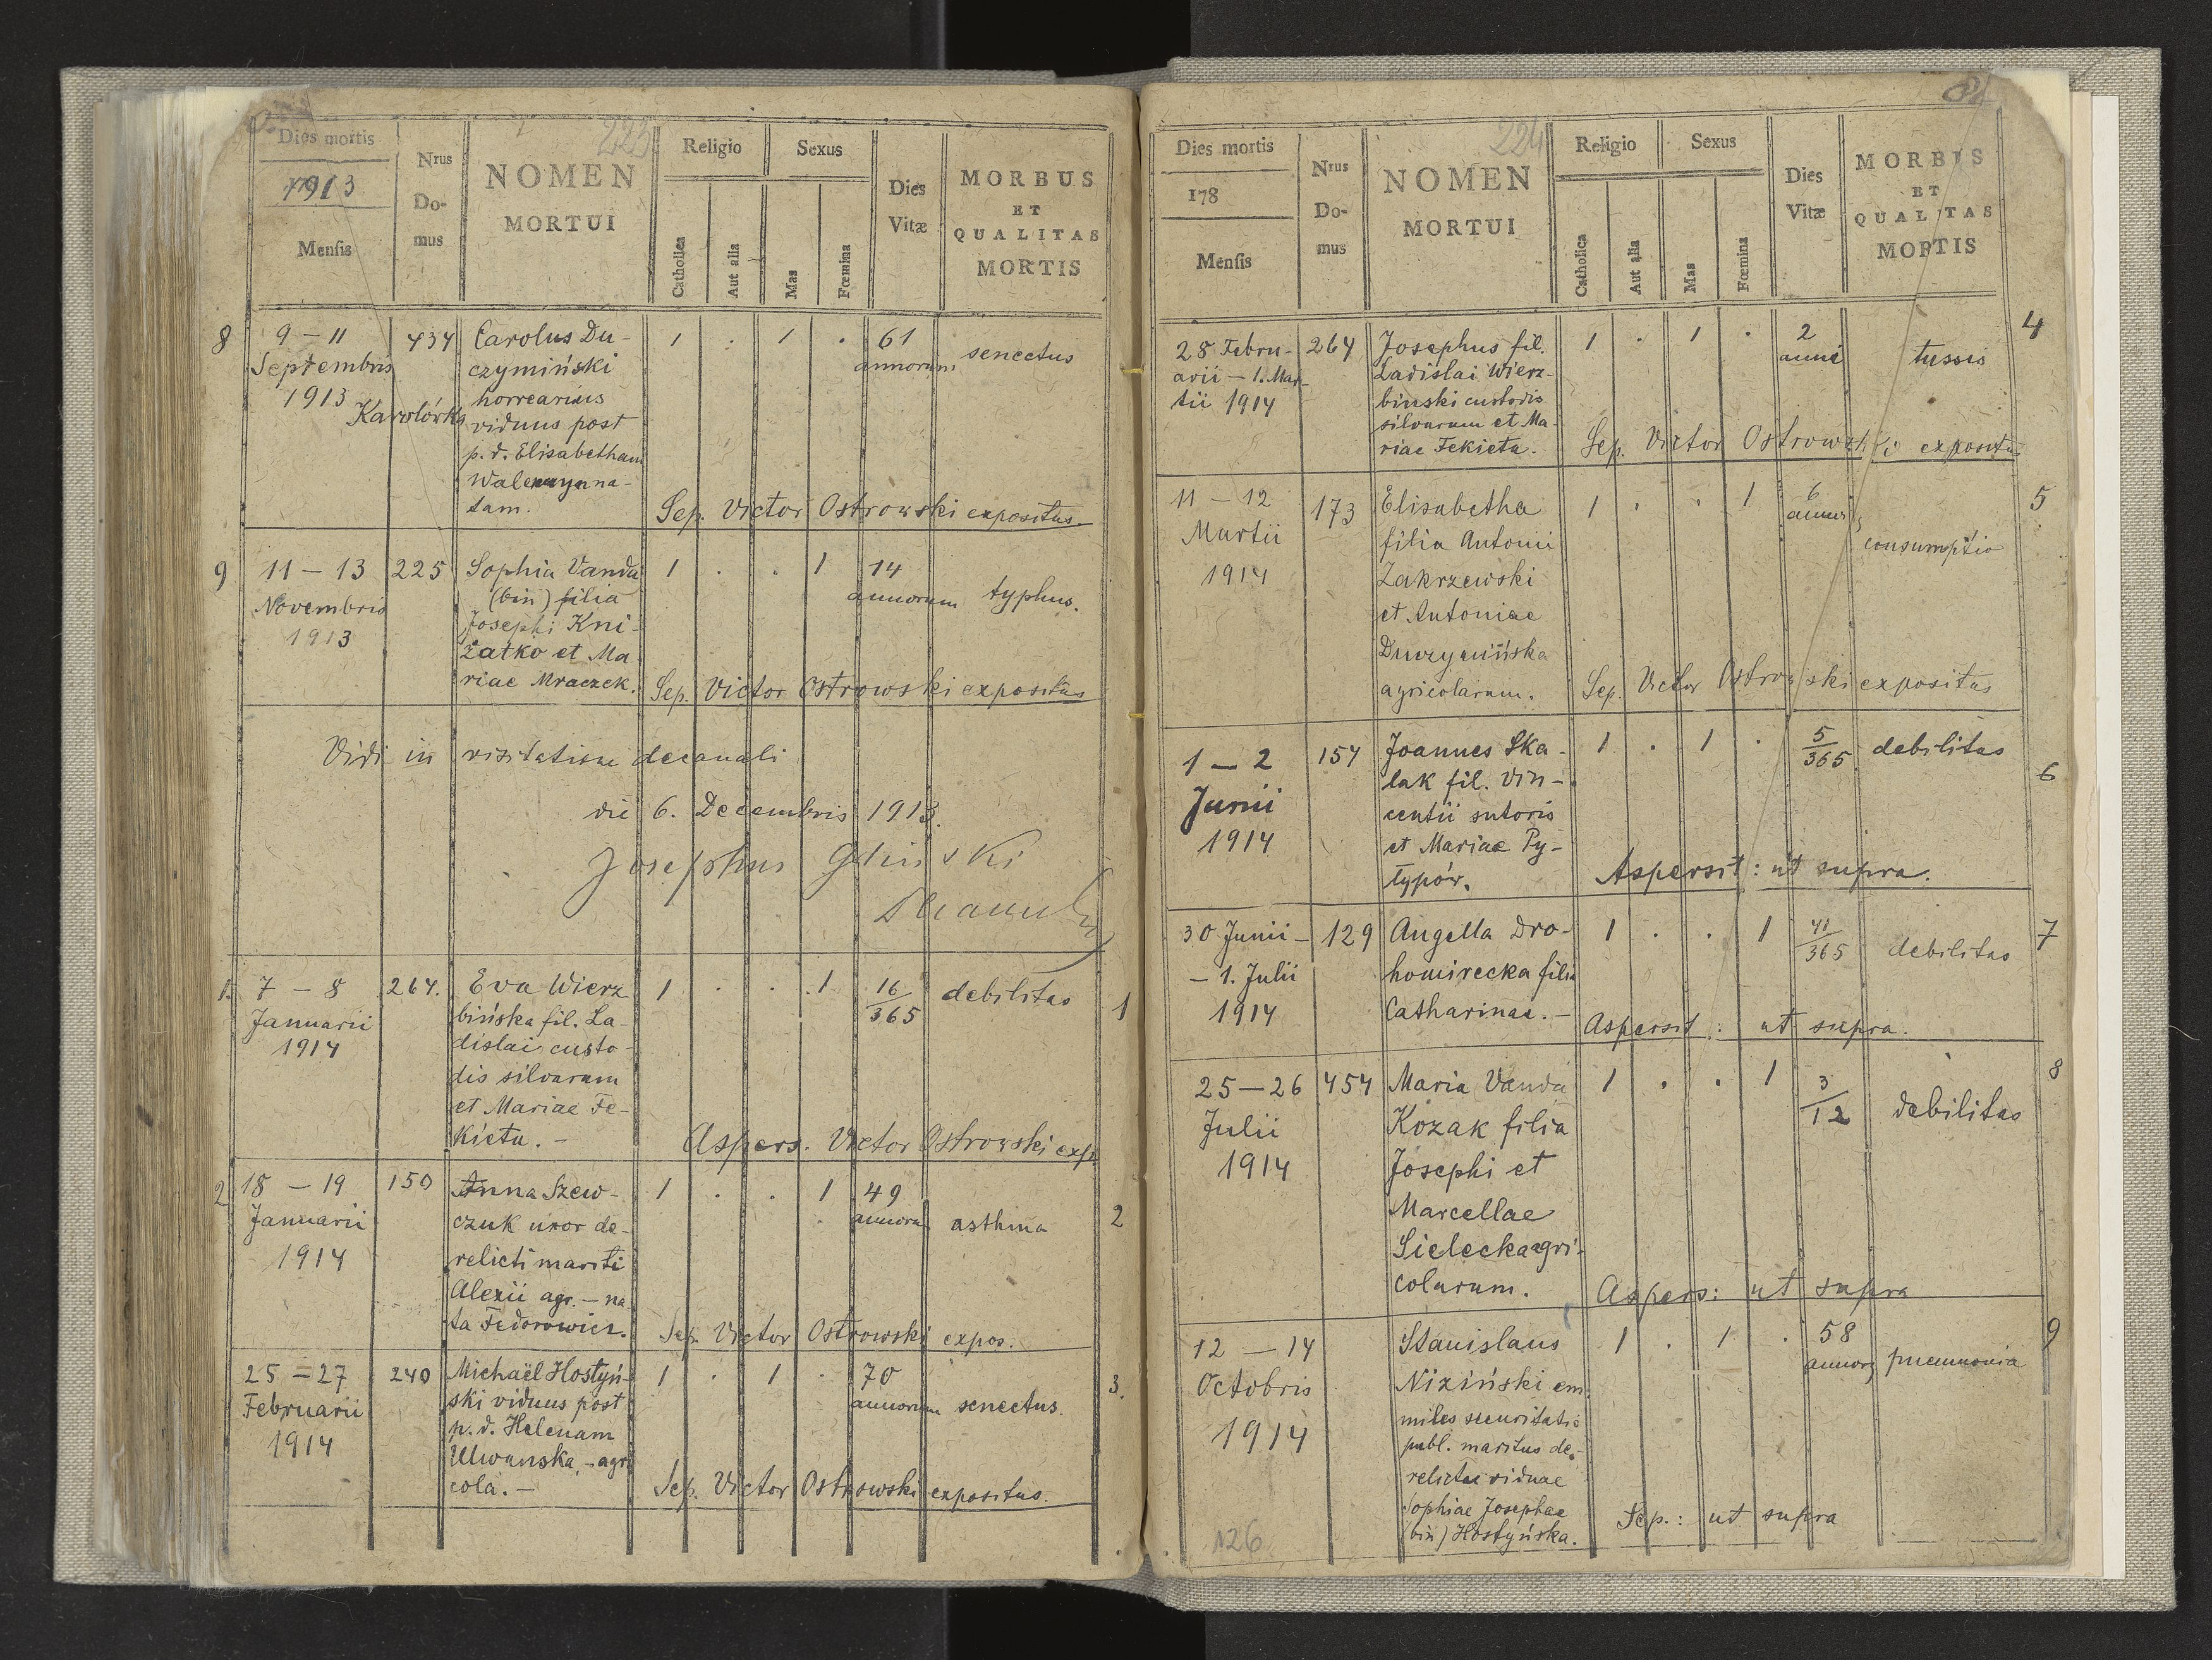 223
Dies mortis
1913
Mensis
Nrus
Do-
mus
NOMEN
MORTUI
Religio
Catholica
Aut alia
Sexus
Mas
Fœmina
Dies
Vitæ
MORBUS
ET
QUALITAS
MORTIS
8
9 – 11
Septembris
1913
Karolówka
434
Carolus Du-
czymiński
horrearius
viduus post
p. d. Elisabetham
na-
tam.
1 . 1 .
61
annorum
senectus
Sep. Victor Ostrowski expositus
9
11 – 13
Novembris
1913
225
Sophia Vanda
(bin) filia
Josephi Kni-
żatko et Ma-
riae Mraczek.
1 . . 1
14
annorum
typhus.
Sep. Victor Ostrowski expositus
Vidi in visitatione decanali
die 6. Decembris 1913.
Josephus
1.
7 – 8
Januarii
1914
264.
Eva Wierz
bińska fil. La-
dislai custo-
dis silvarum
et Mariae Fe-
kieta. –
1 . . 1
16
365
debilitas
1
Aspers. Victor Ostrowski exp.
2
18 – 19
Januarii
1914
150
Anna Szew-
czuk uxor de-
relicti mariti
Alexii agr. – na-
ta Fedorowicz.
1 . . 1
49
annorum
asthma
2
Sep. Victor Ostrowski expos.
25 = 27
Februarii
1914
240
Michaël Hostyń-
ski viduus post
p. d. Helenam
Ulwanska, – agri
cola. –
1 . 1 .
70
annorum
senectus.
3.
Sep. Victor Ostrowski expositus.
224
Dies mortis
178
Mensis
Nrus
Do-
mus
NOMEN
MORTUI
Religio
Catholica
Aut alia
Sexus
Mas
Fœmina
Dies
Vitæ
MORBUS
ET
QUALITAS
MORTIS
28 Febru-
arii – 1. Mar-
tii 1914
264
Josephus fil.
Ladislai Wierz-
binski custodis
silvarum et Ma-
riae Fekieta.
1 . 1 .
2
anni
tussis
4
Sep. Victor Ostrowski expositus
11 – 12
Martii
1914
173
Elisabetha
filia Antonii
Zakrzewski
et Antoniae
Duczymińska
agricolarum.
1 . . 1
6
annor
consumptio
5
Sep. Victor Ostrowski expositus
1 – 2
Junii
1914
157
Joannes Ska-
lak fil. Vin-
centii sutoris
et Mariae Py-
typów.
1 . 1 .
5
365
debilitas
6
Aspersit: ut supra.
30 Junii –
– 1. Julii
1914
129
Angella Dro-
homirecka filia
Catharinae. –
1 . . 1
41
365
debilitas
7
Aspersit: ut supra.
25 – 26
Julii
1914
454
Maria Vanda
Kozak filia
Josephi et
Marcellae
Sielecka agri-
colarum.
1 . . 1
3
12
debilitas
8
Aspers: ut supra
12 – 14
Octobris
1914
Stanislaus
Niziński em.
miles securitatis
publ. maritus de-
relictae viduae
Sophiae Josephae
(bin) Hostyńska.
1 . 1 .
58
annor
pneumonia
9
Sep.: ut supra
126